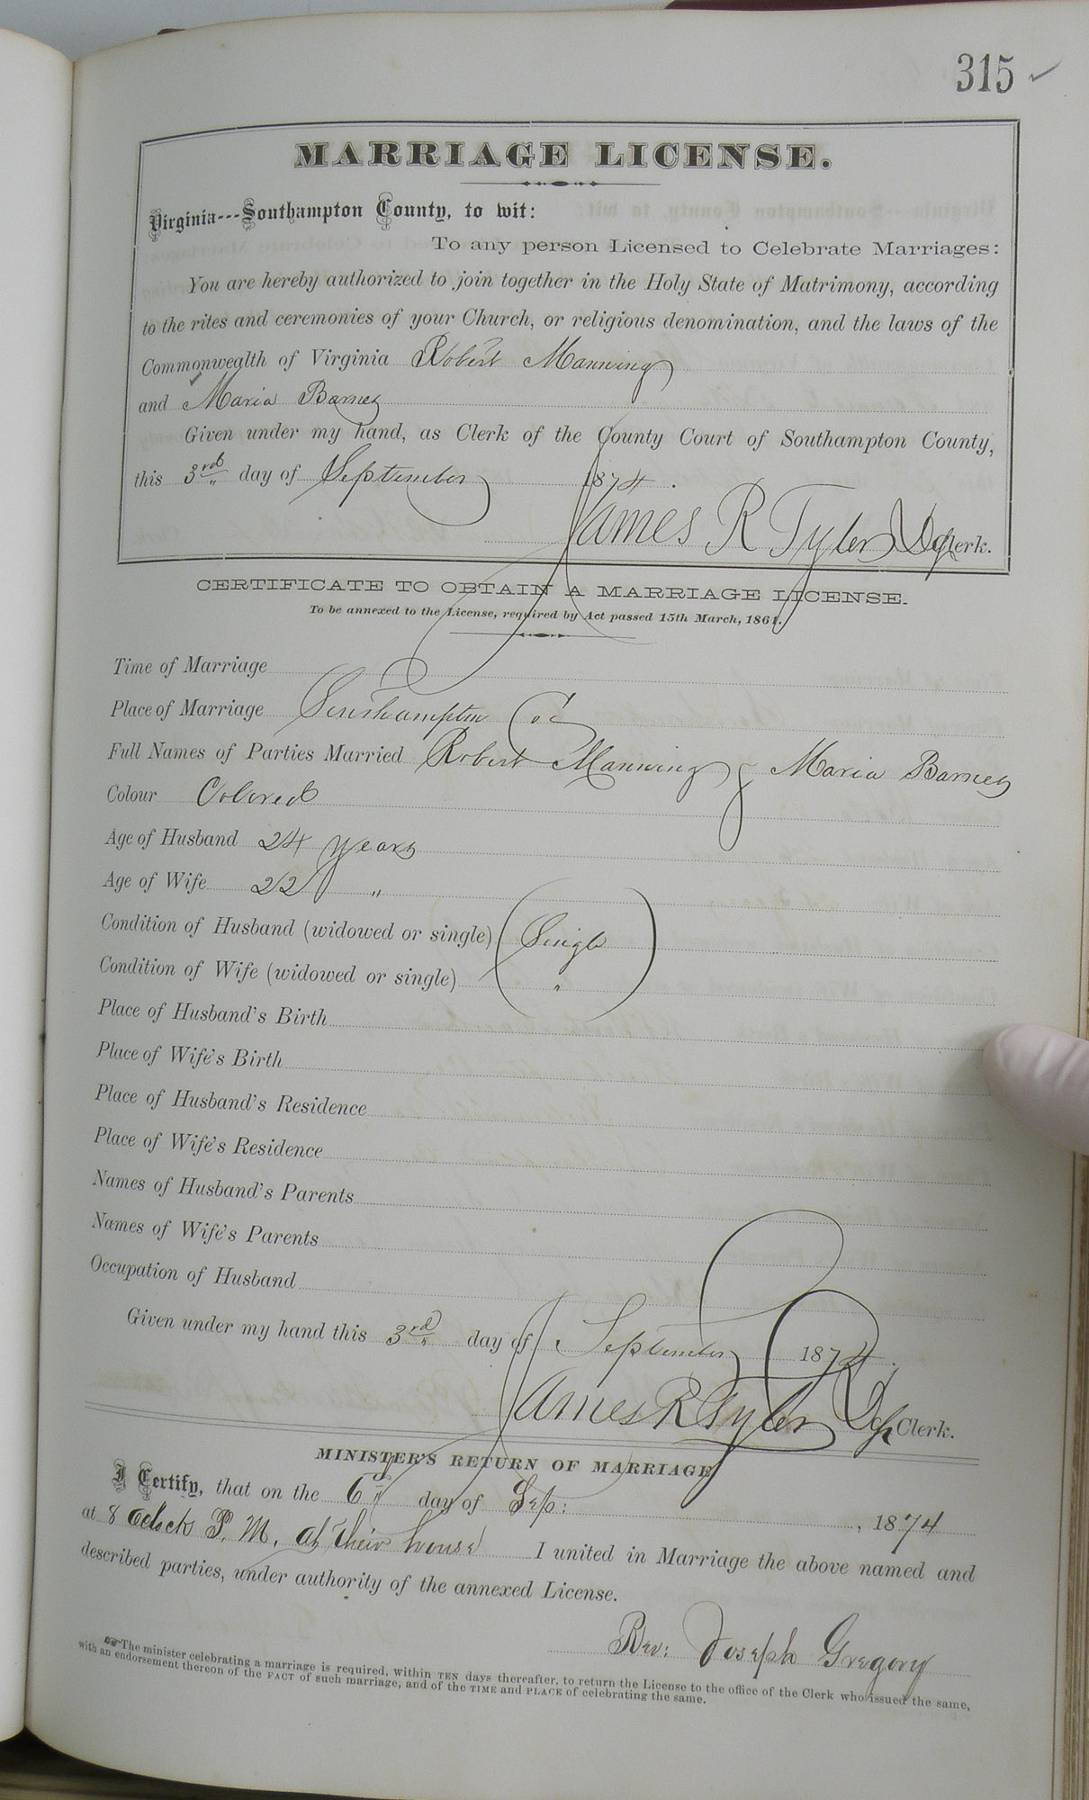 315 ✓
MARRIAGE LICENSE.
Virginia---Southampton County, to wit:
To any person Licensed to Celebrate Marriages:
You are hereby authorized to join together in the Holy State of Matrimony, according
to the rites and ceremonies of your Church, or religious denomination, and the laws of the
Commonwealth of Virginia Robert Manning
and Maria Barnes
Given under my hand, as Clerk of the County Court of Southampton County,
this 3rd day of September 1874.
James R Tyler Dp Clerk.
CERTIFICATE TO OBTAIN A MARRIAGE LICENSE.
To be annexed to the License, required by Act passed 15th March, 1861.
Time of Marriage
Place of Marriage Southampton Co
Full Names of Parties Married Robert Manning & Maria Barnes
Colour Colored
Age of Husband 24 years
Age of Wife 22 "
Condition of Husband (widowed or single) Single
Condition of Wife (widowed or single) "
Place of Husband's Birth
Place of Wife's Birth
Place of Husband's Residence
Place of Wife's Residence
Names of Husband's Parents
Names of Wife's Parents
Occupation of Husband
Given under my hand this 3rd day of September 1874.
James R Tyler Dp Clerk.
MINISTER'S RETURN OF MARRIAGE
I Certify, that on the 6" day of Sep: , 1874
at 8 oclock P. M. at their house I united in Marriage the above named and
described parties, under authority of the annexed License.
Rev: Joseph Gregory
☞The minister celebrating a marriage is required, within TEN days thereafter, to return the License to the office of the Clerk who issued the same,
with an endorsement thereon of the FACT of such marriage, and of the TIME and PLACE of celebrating the same.